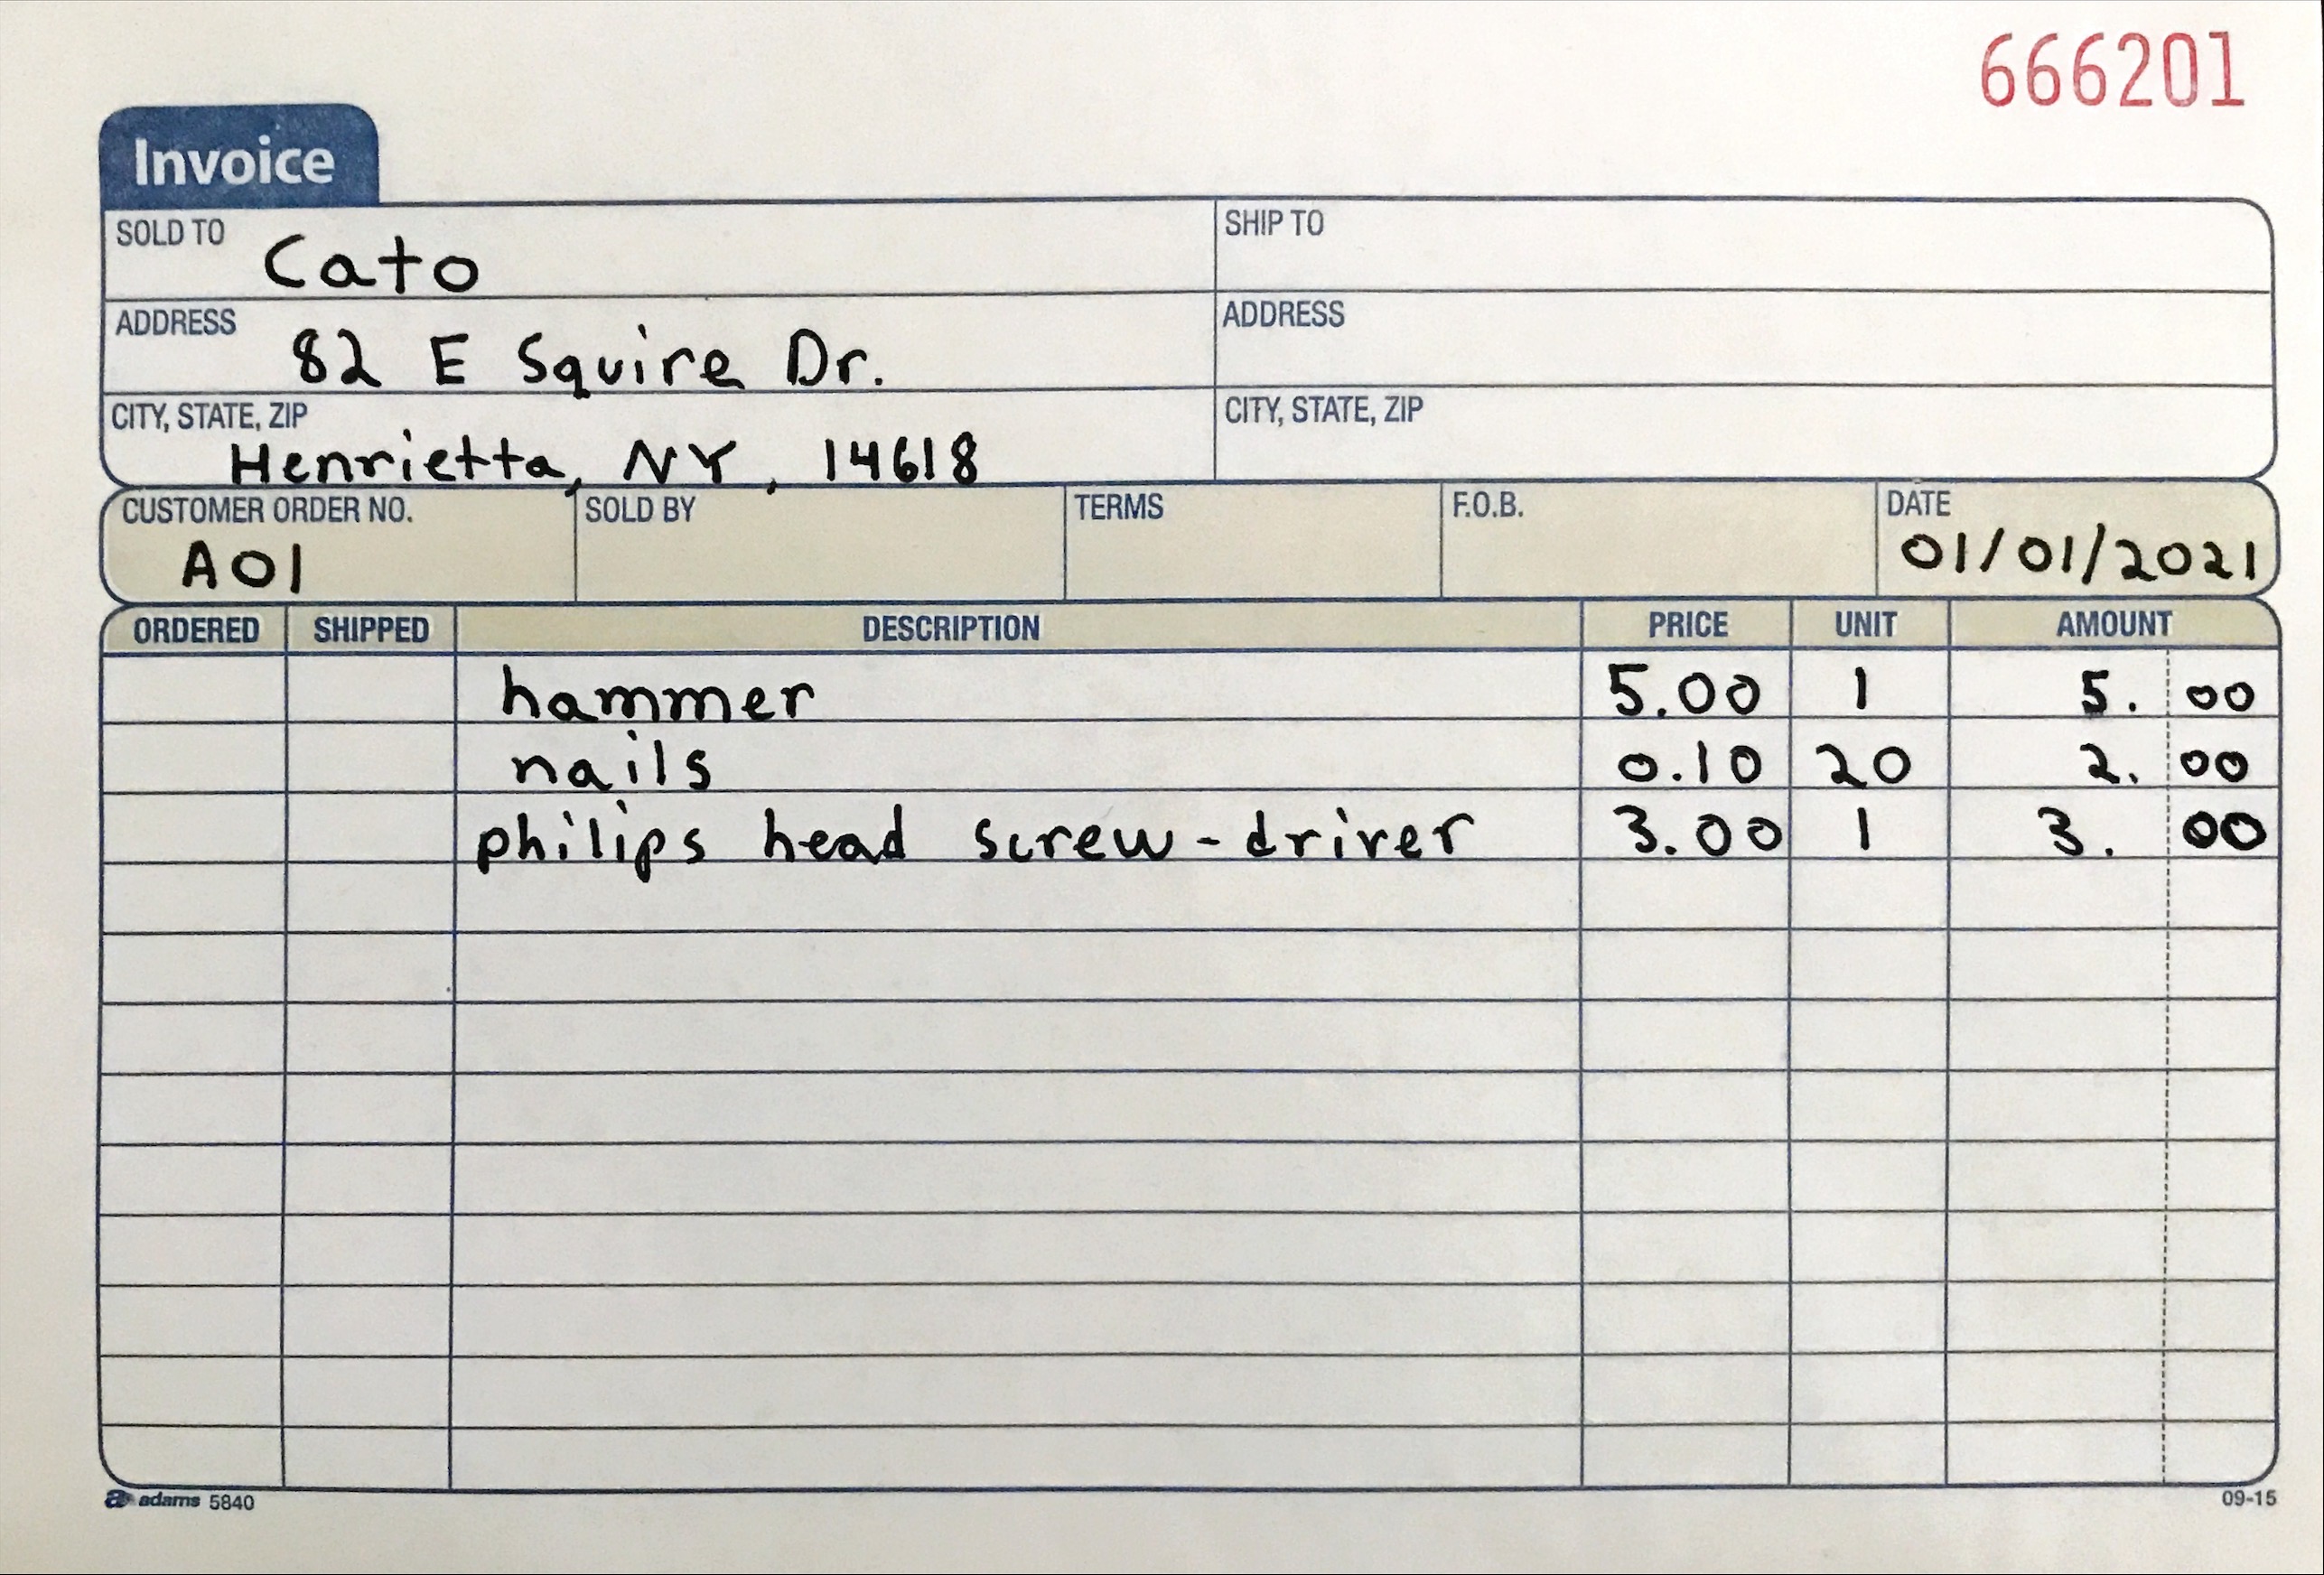 666201
Invoice
SOLD TO Cato SHIP TO
ADDRESS 82 E Squire Dr. ADDRESS
CITY, STATE, ZIP Henrietta, NY, 14618 CITY, STATE, ZIP
CUSTOMER ORDER NO. SOLD BY TERMS F.O.B. DATE
A01 01/01/2021
ORDERED SHIPPED DESCRIPTION PRICE UNIT AMOUNT
hammer 5.00 1 5. 00
nails 0.10 20 2. 00
philips head screw-driver 3.00 1 3. 00
adams 5840 09-15